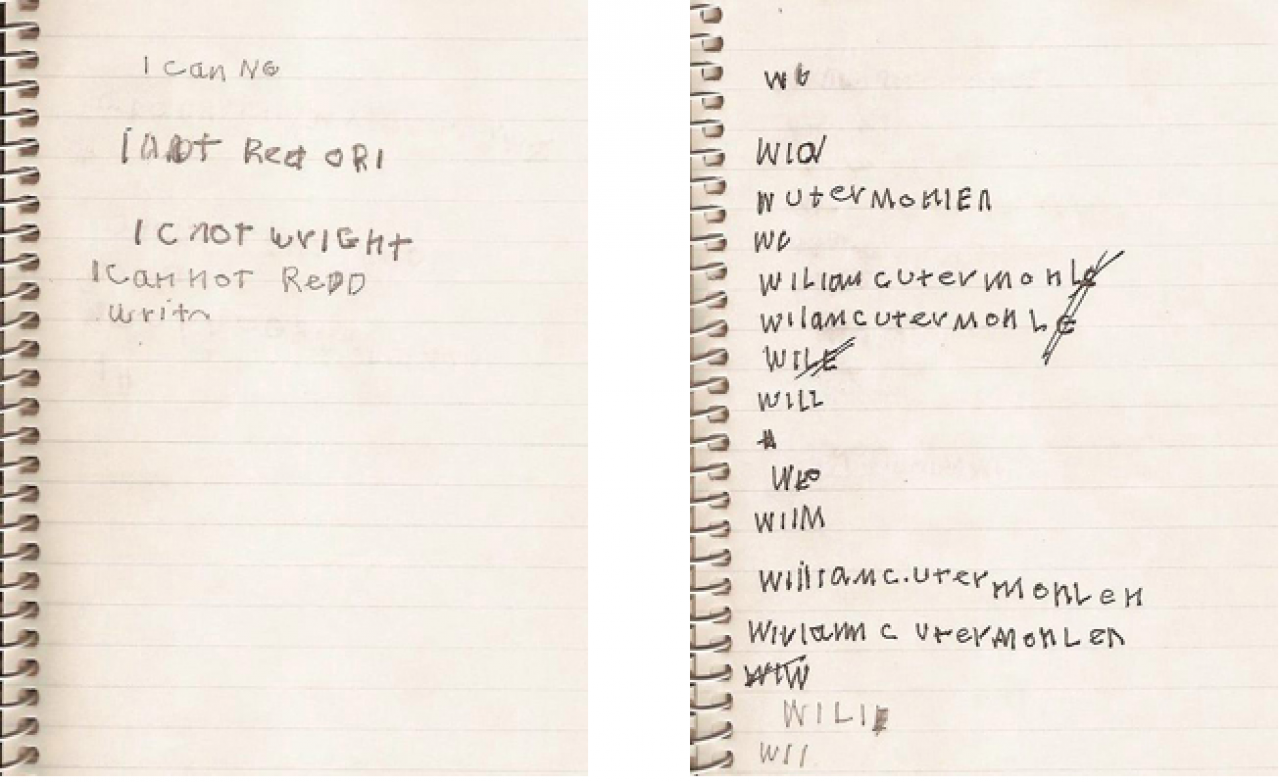 I can NO
I not Red ORI
I c not wrIGHt
I can not ReDD
writn
WIOV
W uterMoHlEn
WC
WILIam cutermohLe
WILamcutermoHLe
WILE
WILL
WIIM
WilliamC.uter moHLeH
Wivlamm C utermoHLen
WIW
WILI
WII